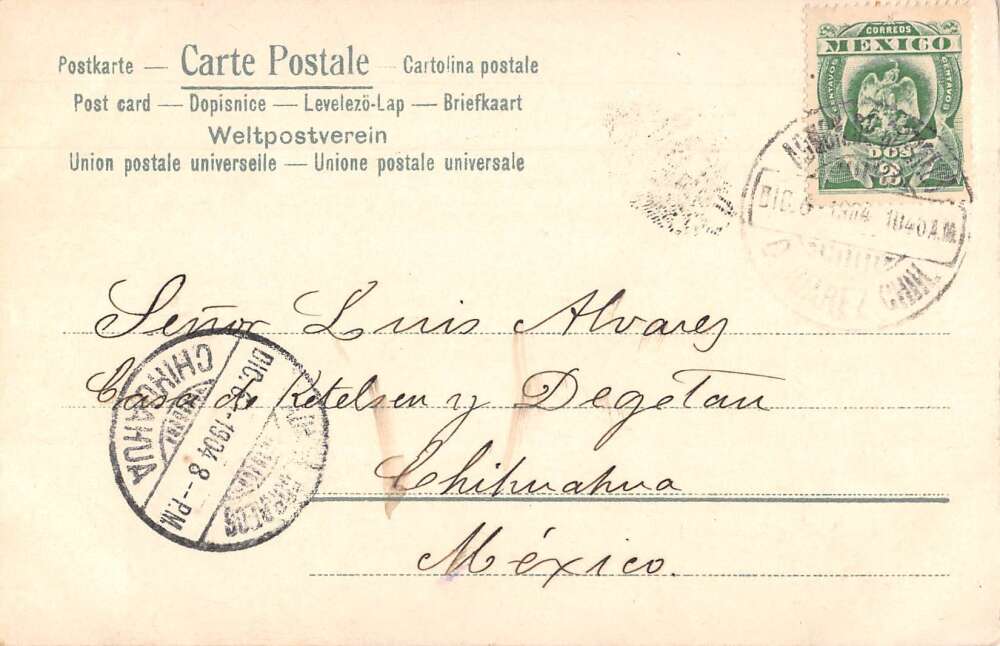 Postkarte — Carte Postale — Cartolina postale
Post card — Dopisnice — Levelezö-Lap — Briefkaart
Weltpostverein
Union postale universelle — Unione postale universale
CORREOS
MEXICO
CENTAVOS CENTAVOS
DOS
2
DIC. 6 - 1904 1040 A.M.
C. JUAREZ CHIH.
Señor Luis Alvares
Casa de Ketelsen y Degetau
Chihuahua
México.
CHIHUAHUA
DIC. 6 - 1904 8 - P.M.